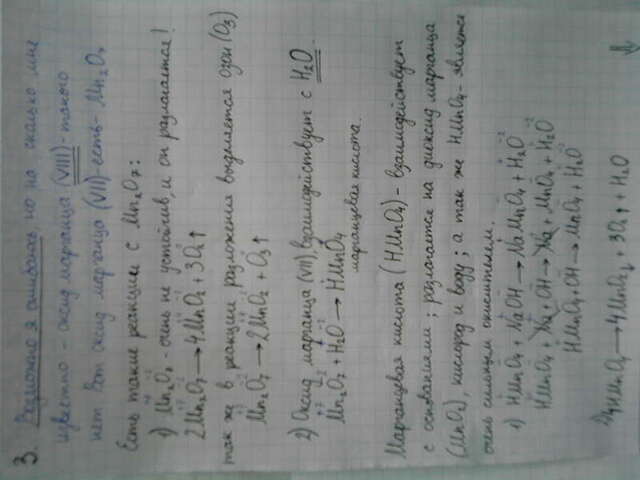 3. Возможно я ошибаюсь, но на сколько мне
известно - оксид марганца (VIII) - такого
нет. Вот оксид марганца (VII) - есть - Mn2O7
Есть такие реакции с Mn2O7:
1) Mn2O7 - очень не устойчив, и он разлагается!
2Mn2O7 → 4MnO2 + 3O2↑
так же в реакции разложения выделяется озон (O3)
Mn2O7 → 2MnO2 + O3↑
2) Оксид марганца (VII), взаимодействует с H2O.
Mn2O7 + H2O → HMnO4
марганцевая кислота.
Марганцевая кислота (HMnO4) - взаимодействует
с основаниями; разлагается на диоксид марганца
(MnO2), кислород и воду; а так же HMnO4 - является
очень сильным окислителем.
1) HMnO4 + NaOH → NaMnO4 + H2O
HMnO4 + Na OH → Na + MnO4 + H2O
HMnO4 + OH → MnO4 + H2O
2) 4HMnO4 → 4MnO2↓ + 3O2↑ + H2O